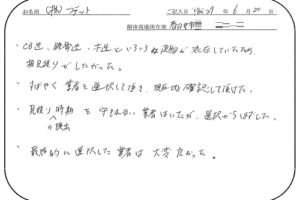 お名前 (株)フデット ご記入日 平成29年6月20日
解体現場所在地 春日井市
・CB造、鉄骨造、木造といろいろな建物が混在していたため、
相見積りがしたかった。
・すばやく業者を選択して頂き、現在地確認して頂けた。
・見積り時期を守れない業者はいたが、選択からはずした。
の提出
・最終的に選択した業者は大変良かった。